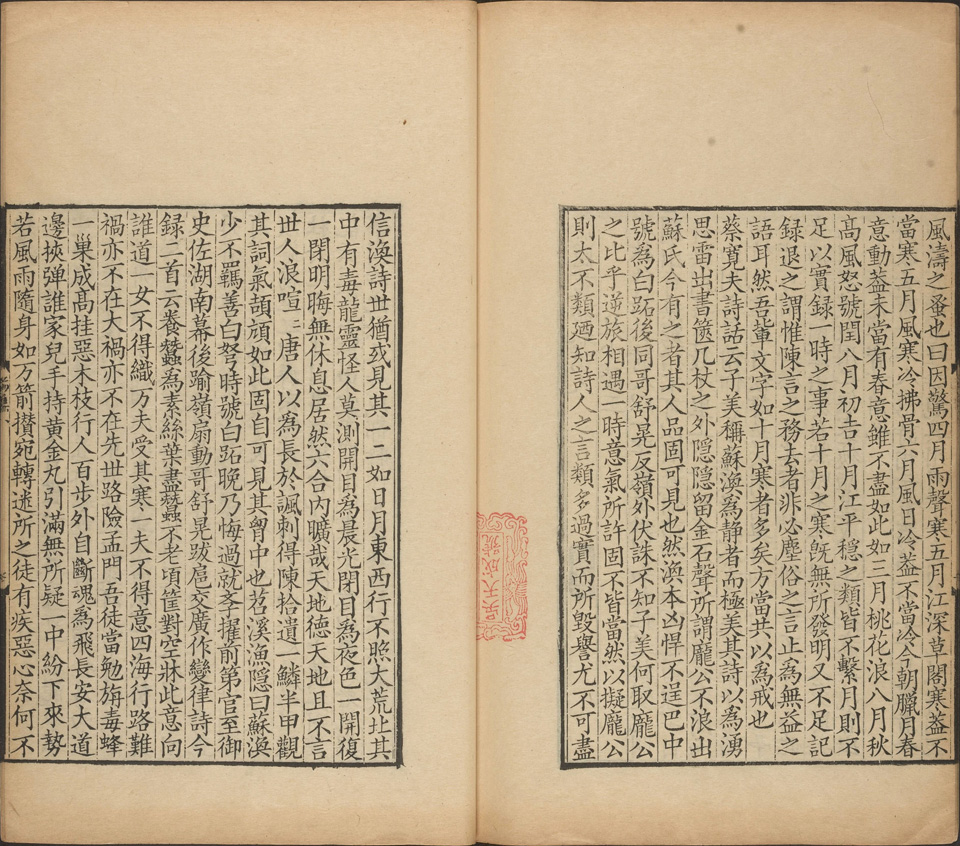 風濤之蚤也曰因驚四月雨聲寒五月江深草閣寒葢不
當寒五月風寒冷拂骨六月風日冷葢不當冷今朝臘月春
意動葢未當有春意雖不盡如此如三月桃花浪八月秋
髙風怒號閏八月初吉十月江平穏之類皆不繫月則不
足以實録一時之事若十月之寒旣無所發明又不足記
録退之謂惟陳言之務去者非必塵俗之言止為無益之
語耳然吾軰文字如十月寒者多矣方當共以為戒也
蔡寛夫詩話云子美稱蘇渙為静者而極美其詩以為湧
思雷出書篋几杖之外隠隠留金石聲所謂龐公不浪出
蘇氏今有之者其人品固可見也然渙本凶悍不逞巴中
號為白跖後同哥舒晃反嶺外伏誅不知子美何取龐公
之比乎逆旅相遇一時意氣所許固不皆當然以擬龐公
則太不類廼知詩人之言類多過實而所毀譽尤不可盡
信渙詩世猶或見其一二如日月東西行不照大荒北其
中有毒龍靈怪人莫測開目為晨光閉目為夜色一開復
一閉明晦無休息居然六合内曠哉天地德天地且不言
世人浪喧喧唐人以為長於諷刺得陳拾遺一鱗半甲觀
其詞氣頡頏如此固自可見其胷中也苕溪漁隠曰蘇渙
少不羈善白弩時號白跖晚乃悔過就學擢前第官至御
史佐湖南幕後踰嶺扇動哥舒晃跋扈交廣作變律詩今
録二首云養蠶為素絲葉盡蠶不老頃筐對空牀此意向
誰道一女不得織万夫受其寒一夫不得意四海行路難
禍亦不在大禍亦不在先世路險孟門吾徒當勉旃毒蜂
一巢成髙挂惡木枝行人百步外目斷魂為飛長安大道
邊挾弹誰家兒手持黄金丸引滿無所疑一中紛下來勢
若風雨隨身如万箭攅宛轉迷所之徒有疾惡心奈何不